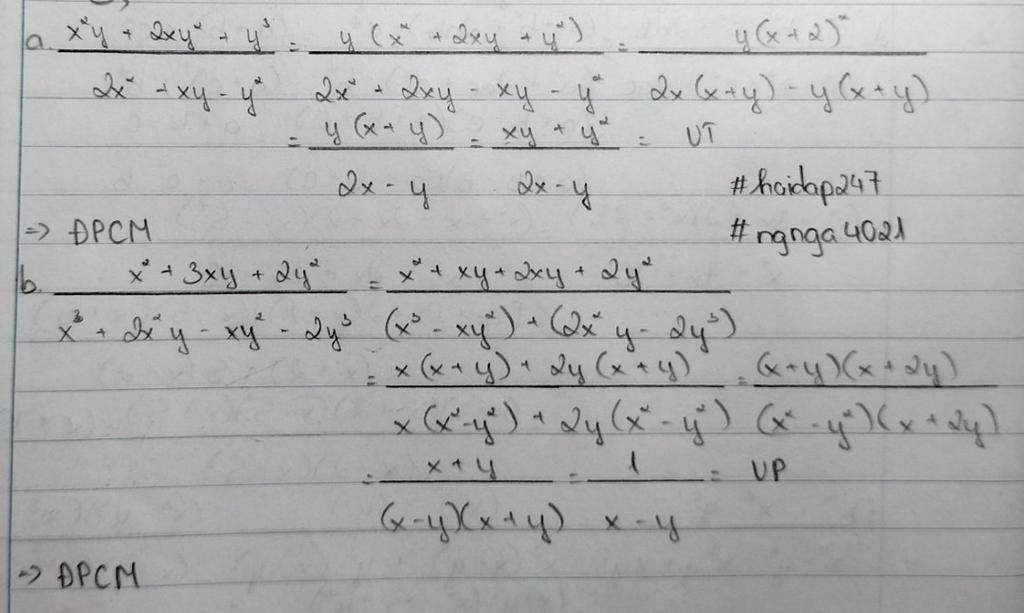 a. (x²y + 2xy² + y³)/(2x² + xy - y²) = y(x² + 2xy + y²)/(2x² + 2xy - xy - y²) = y(x+2)²/(2x(x+y) - y(x+y))
= y(x+y)/(2x - y) = (xy + y²)/(2x - y) = VT
#hoidap247
=> ĐPCM #ngnga4021
b. (x² + 3xy + 2y²)/(x³ + 2x²y - xy² - 2y³) = (x² + xy + 2xy + 2y²)/((x³ - xy²) + (2x²y - 2y³))
= (x(x+y) + 2y(x+y))/(x(x²-y²) + 2y(x²-y²)) = (x+y)(x+2y)/((x²-y²)(x+2y))
= (x+y)/((x-y)(x+y)) = 1/(x-y) = VP
=> ĐPCM